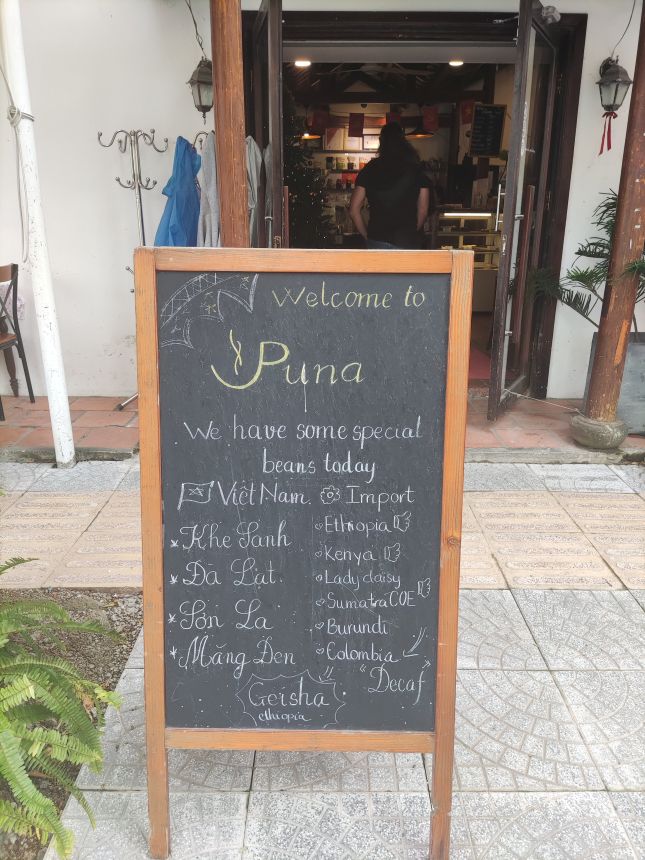 Welcome to
Puna
We have some special
beans today
Việt Nam.
Khe Sanh
Đà Lạt.
Sơn La
Măng Đen
Import
Ethiopia
Kenya
Lady daisy
Sumatra COE
Burundi
Colombia
"Decaf"
Geisha
ethiopia